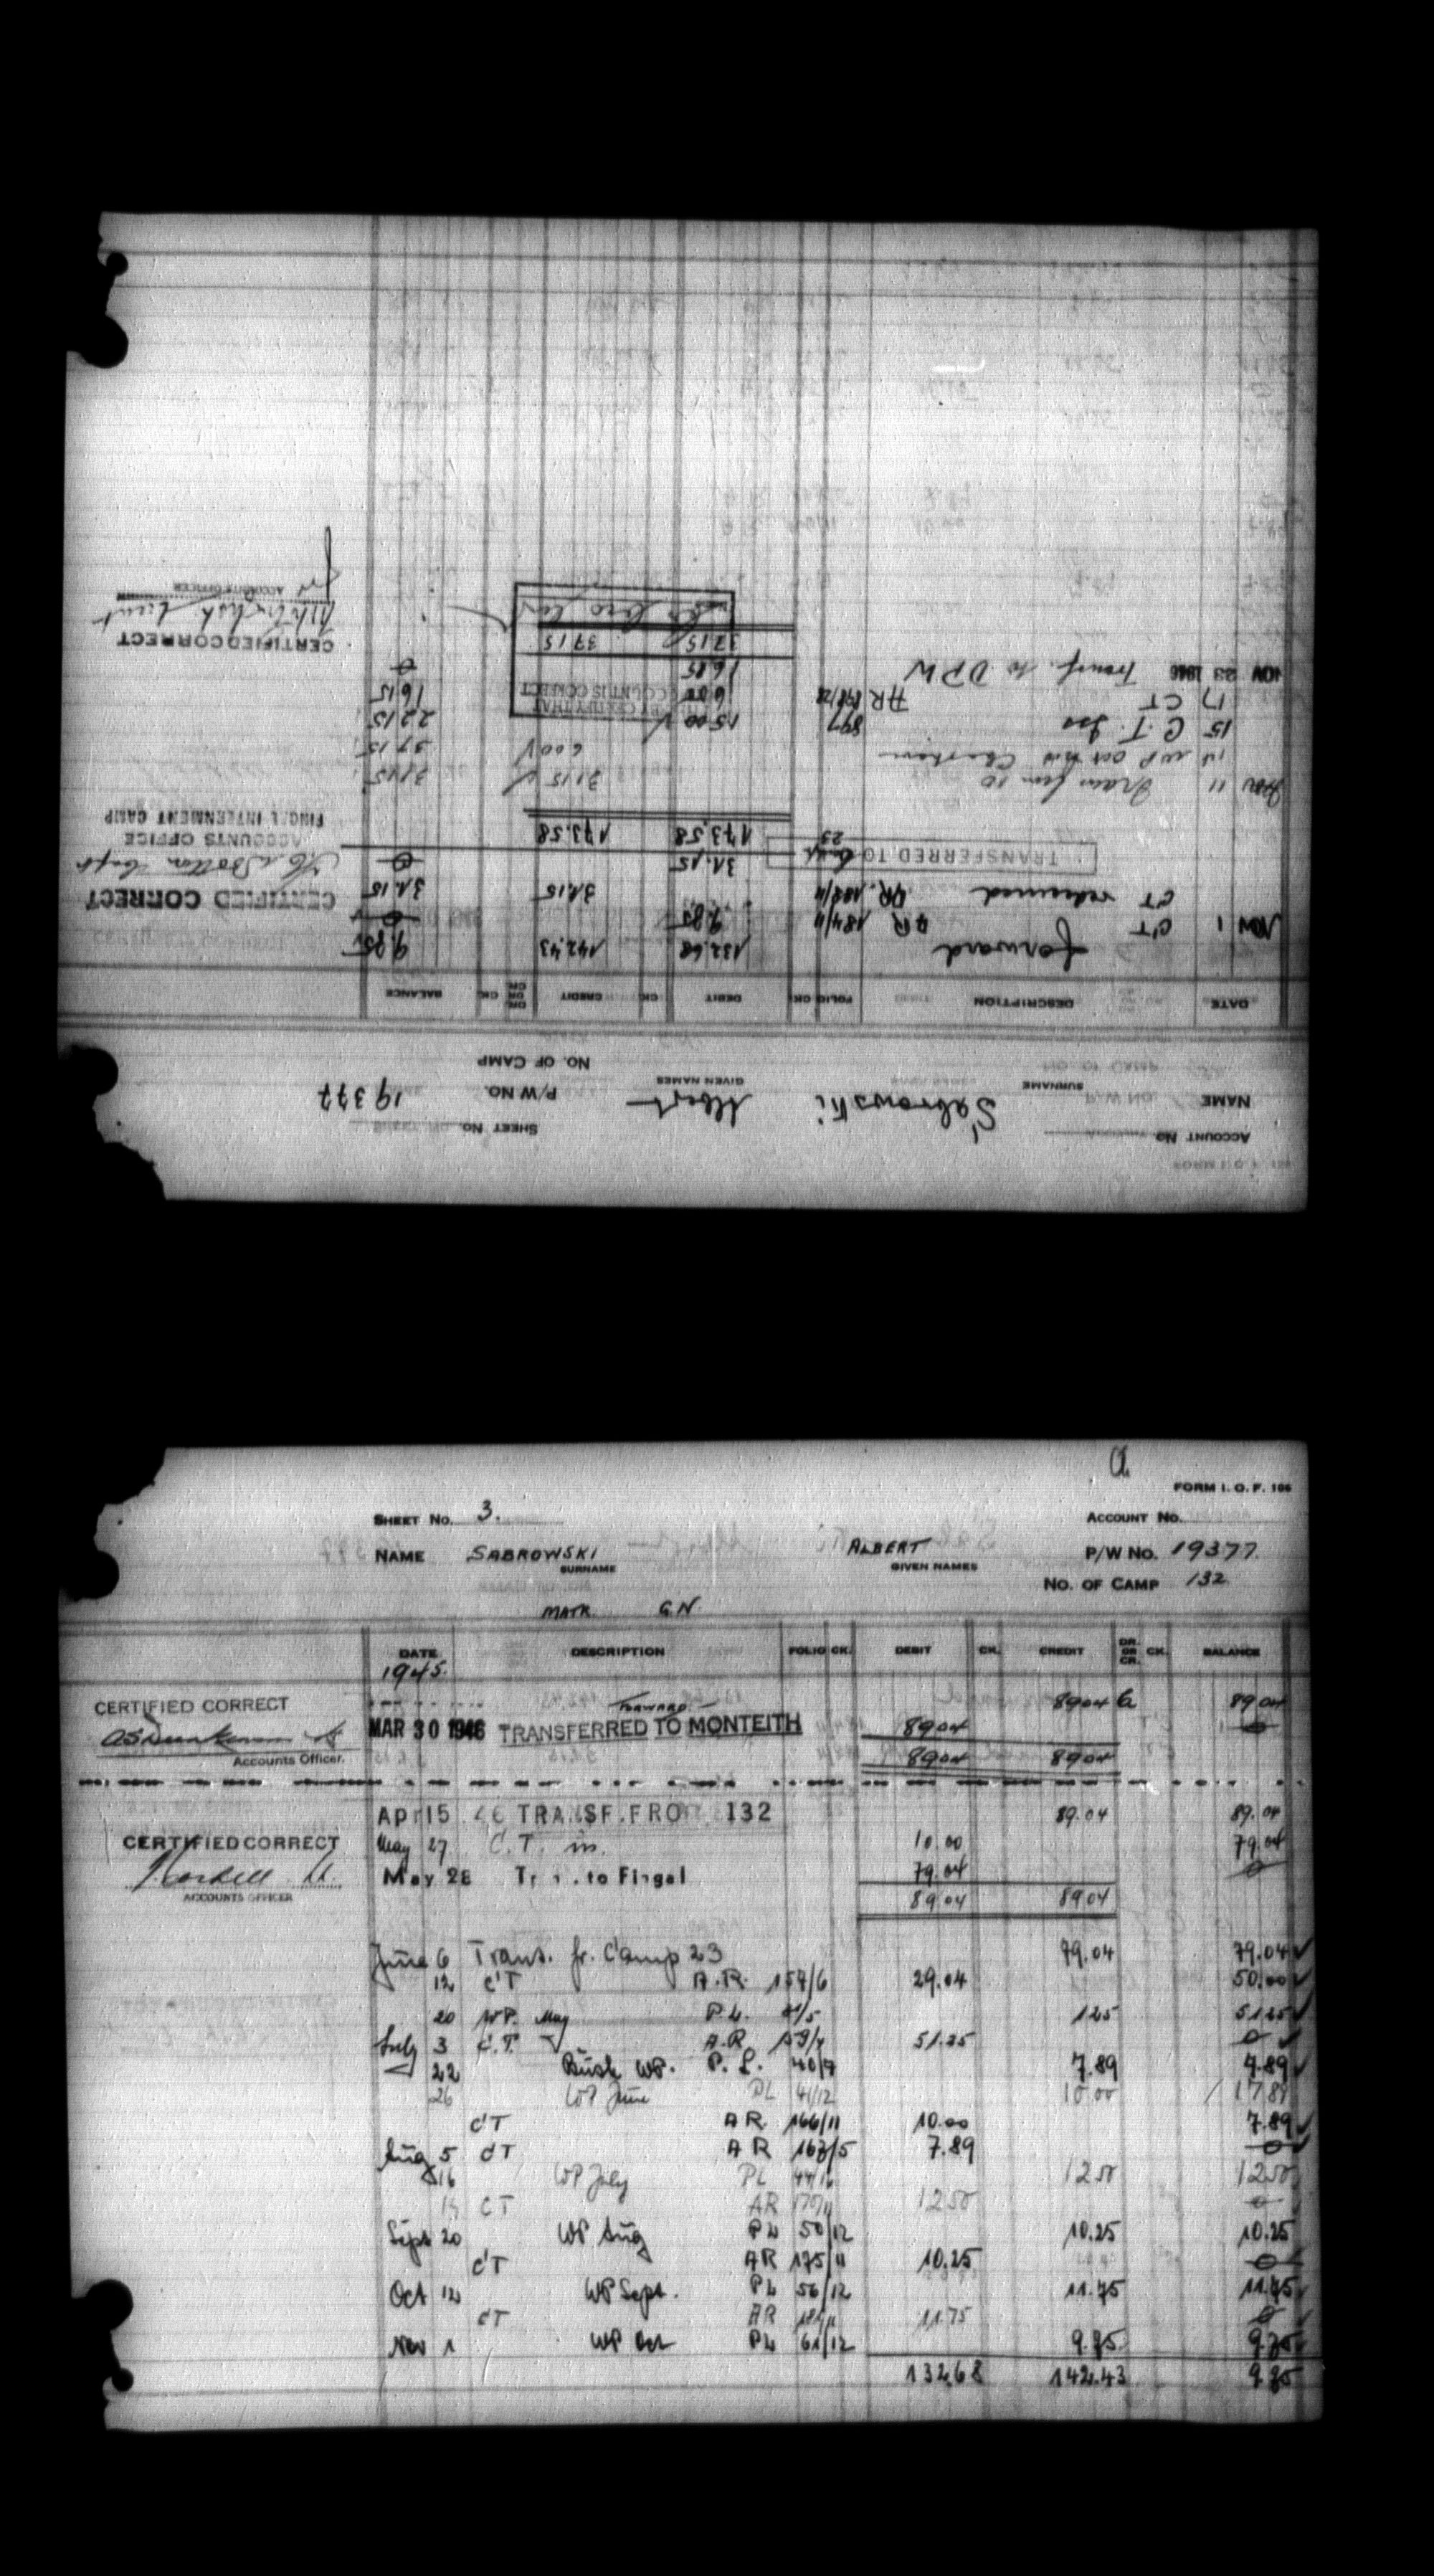 FORM I. O. F. 106
ACCOUNT No.
SHEET No.
NAME Sabrowski Albert P/W No. 19377
SURNAME GIVEN NAMES
NO. OF CAMP
DATE DESCRIPTION FOLIO CK. DEBIT CK. CREDIT DR. OR CR. CK. BALANCE
forward 132.68 142.43 9.75
Nov 1 CT AR 184/11 9.75 0
CERTIFIED CORRECT
CT redeemed AR. 188/11 31.15 31.15
TRANSFERRED TO 23 31.15 0
ACCOUNTS OFFICE
FINGAL INTERNMENT CAMP
173.58 173.58
Nov 11 from 10 31 15 31 15
14 WP Oct 6 00 37 15
15 C.T. 897 15 00 22 15
17 CT AR 898/12 6 00 16 15
NOV 23 1946 Transf. to DPW 16 15 0
37 15 37 15
CERTIFIED CORRECT
ACCOUNTS OFFICER
a
FORM I. O. F. 106
SHEET No. 3. ACCOUNT No.
NAME SABROWSKI ALBERT P/W No. 19377
SURNAME GIVEN NAMES
No. OF CAMP 132
MATR. G.N.
DATE DESCRIPTION FOLIO CK. DEBIT CK. CREDIT DR. OR CR. CK. BALANCE
1945.
CERTIFIED CORRECT
FORWARD 89 04 89 04
MAR 30 1946 TRANSFERRED TO MONTEITH 89 04 0
Accounts Officer.
89 04 89 04
Apr 15 46 TRANSF. FRO 132 89.04 89.04
CERTIFIED CORRECT
May 27 C.T. in. 10.00 79.04
May 28 Tr . to Fingal 79.04 0
ACCOUNTS OFFICER
89.04 89.04
June 6 Trans. fr. Camp 23 79.04 79.04
12 CT A.R. 157/6 29.04 50.00
20 WP. May P.L. /5 1.25 51.25
July 3 C.T. A.R. 159/4 51.25 0
22 Bush WP. P.L. 40/7 7.89 7.89
26 WP June PL 41/12 10.00 17.89
CT AR 166/11 10.00 7.89
Aug 5 CT AR 167/5 7.89 0
16 WP July PL 44/12 50 12 50
CT AR 170/11 12 50 0
Sept 20 WP Aug PL 50/12 10.25 10.25
CT AR 175/11 10.25 0
Oct 12 WP Sept. PL 56/12 11.75 11.75
CT AR 11.75 0
Nov 1 WP Oct PL 61/12 9.75 9.75
132.68 142.43 9.75